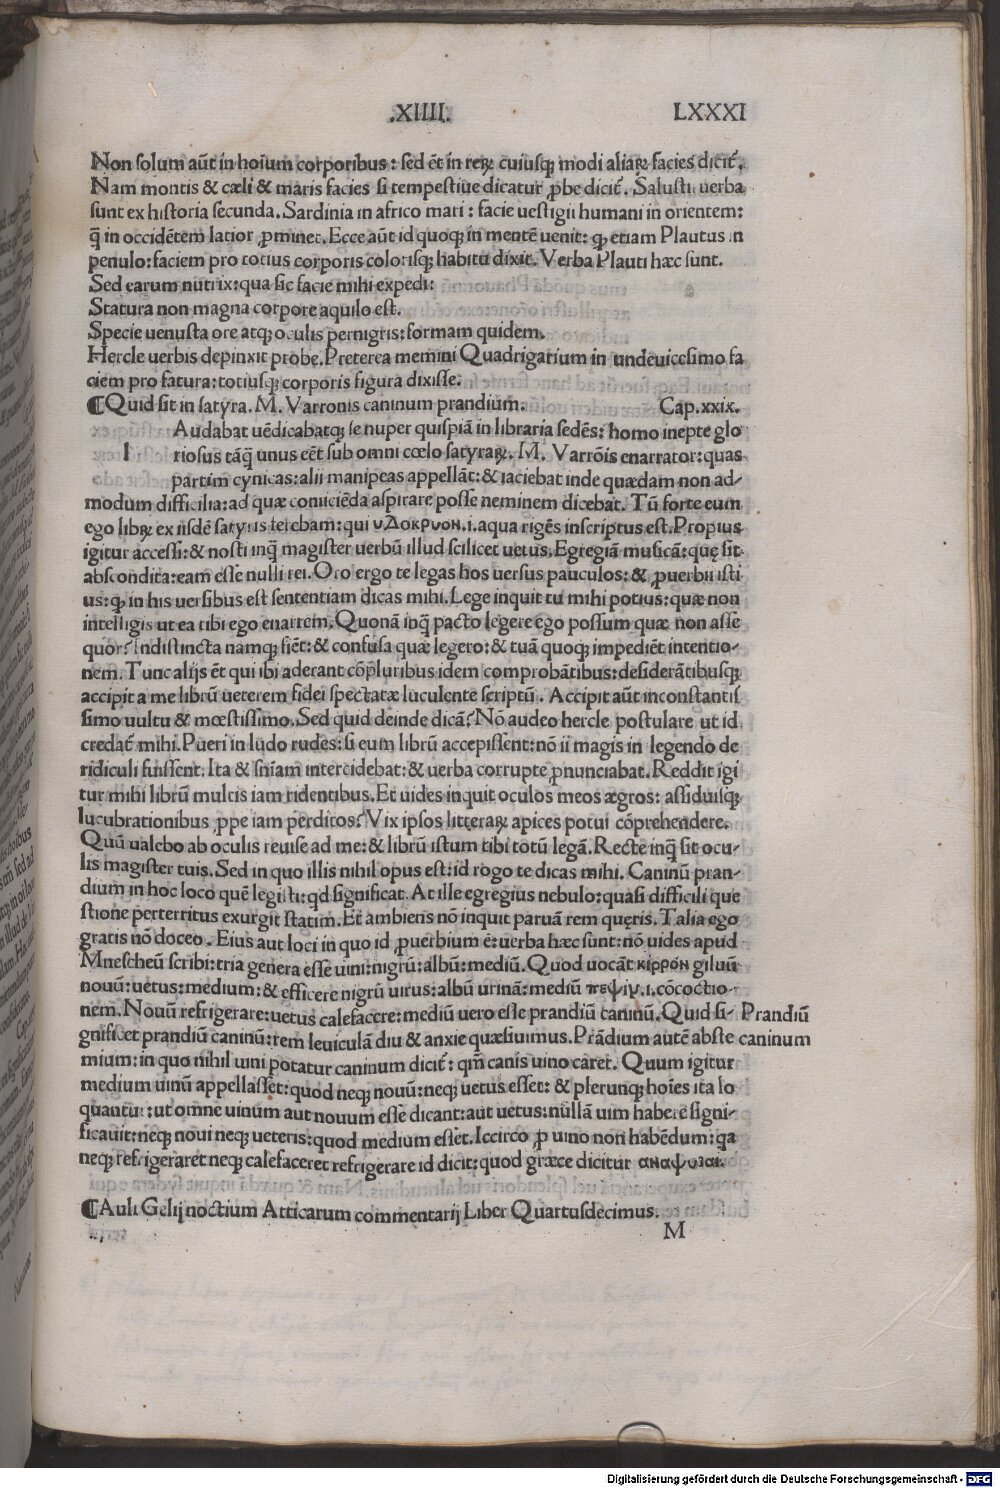 .XIIII. LXXXI
Non solum aūt in hoīum corporibus: sed ēt in reꝝ cuiusqꝫ modi aliaꝝ facies dicit̄.
Nam montis & cæli & maris facies si tempestiue dicatur ꝓbe dicit̄. Salusti uerba
sunt ex historia secunda. Sardinia in africo mari: facie uestigii humani in orientem:
q̄ in occidētem latior ꝓminet. Ecce aūt id quoqꝫ in mentē uenit: ꝙ etiam Plautus in
penulo: faciem pro totius corporis colorisqꝫ habitu dixit. Verba Plauti hæc sunt.
Sed earum nutrix: qua sic facie mihi expedi:
Statura non magna corpore aquilo est.
Specie uenusta ore atqꝫ oculis pernigris: formam quidem.
Hercle uerbis depinxit probe. Preterea memini Quadrigarium in undeuicesimo fa
ciem pro statura: totiusqꝫ corporis figura dixisse.
¶Quid sit in satyra. M. Varronis caninum prandium. Cap. xxix.
Audabat uēdicabatqꝫ se nuper quispiā in libraria sedēs: homo inepte glo
l riosus tāq̄ unus eēt sub omni cœlo satyraꝝ. M. Varrōis enarrator: quas
partim cynicas: alii manipeas appellāt: & iaciebat inde quædam non ad-
modum difficilia: ad quæ coniiciēda aspirare posse neminem dicebat. Tū forte eum
ego libꝝ ex iisdē satyris ferebam: qui υΔοκρυον .i. aqua rigēs inscriptus est. Propius
igitur accessi: & nosti inq̄ magister uerbū illud scilicet uetus. Egregiā musicā: quę sit
abscondita: eam esse nulli rei. Oro ergo te legas hos uersus pauculos: & ꝓuerbii isti
us: ꝙ in his uersibus est sententiam dicas mihi. Lege inquit tu mihi potius: quæ non
intelligis ut ea tibi ego enarrem. Quonā inq̄ pacto legere ego possum quæ non asse
quor? Indistincta namqꝫ fiēt: & confusa quæ legero: & tuā quoqꝫ impediēt intentio-
nem. Tunc alijs ēt qui ibi aderant cōpluribus idem comprobātibus: desiderātibusqꝫ
accipit a me librū ueterem fidei spectatæ luculente scriptū. Accipit aūt inconstantis
simo uultu & mœstissimo. Sed quid deinde dicā? Nō audeo hercle postulare ut id
credat̄ mihi. Pueri in ludo rudes: si eum librū accepissent: nō ii magis in legendo de
ridiculi fuissent. Ita & sn̄iam intercidebat: & uerba corrupte ꝓnunciabat. Reddit igi
tur mihi librū multis iam ridentibus. Et uides inquit oculos meos ægros: assiduisqꝫ
lucubrationibus ꝓpe iam perditos? Vix ipsos litteraꝝ apices potui cōprehendere.
Quū ualebo ab oculis reuise ad me: & librū istum tibi totū legā. Recte inq̄ sit ocu-
lis magister tuis. Sed in quo illis nihil opus est: id rogo te dicas mihi. Caninū pran-
dium in hoc loco quē legisti: qd significat. At ille egregius nebulo: quasi difficili que
stione perterritus exurgit statim. Et ambiens nō inquit paruā rem quęris. Talia ego
gratis nō doceo. Eius aut loci in quo id ꝓuerbium ē: uerba hæc sunt: nō uides apud
Mnescheū scribi: tria genera esse uini: nigrū: albū: mediū. Quod uocāt κιρρον giluū
nouū: uetus: medium: & efficere nigrū uirus: albū urinā: mediū πεψιν .i. cōcoctio-
nem. Nouū refrigerare: uetus calefacere: mediū uero esse prandiū caninū. Quid si- Prandiū
gnificet prandiū caninū: rem leuiculā diu & anxie quæsiuimus. Prādium autē abste caninum
mium: in quo nihil uini potatur caninum dicit̄: qm̄ canis uino caret. Quum igitur
medium uinū appellasset: quod neqꝫ nouū: neqꝫ uetus esset: & plerunqꝫ hoīes ita lo
quantur: ut omne uinum aut nouum esse dicant: aut uetus: nullā uim habere signi-
ficauit: neqꝫ noui neqꝫ ueteris: quod medium esset. Iccirco ꝓ uino non habēdum: qa
neqꝫ refrigeraret neqꝫ calefaceret refrigerare id dicit: quod græce dicitur αναψυξαι.
¶Auli Gelij noctium Atticarum commentarij Liber Quartusdecimus.
M
Digitalisierung gefördert durch die Deutsche Forschungsgemeinschaft - DFG